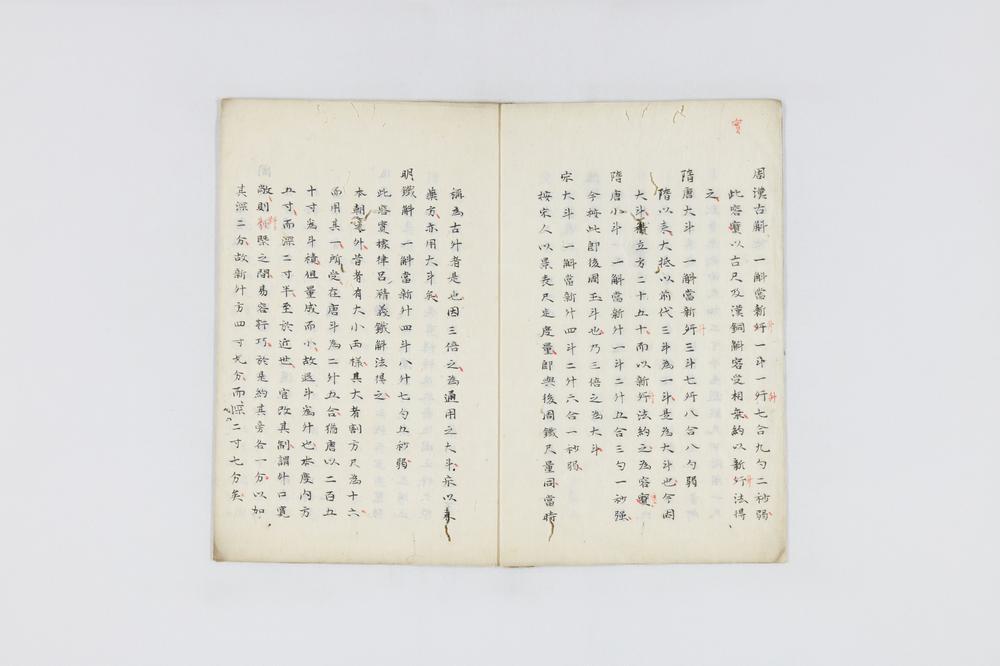 實
周漢古斛 一斛當新升一斗一升七合九勺二秒弱
此容實以古尺及漢銅斛容受相乗約以新升法得
之
隋唐大斗 一斛當新升三斗七升八合八勺弱
隋以 大抵以前代三斗為一斗是為大斗也今因
大斗積立方二十五寸而以新升法約之為容實
隋唐小斗 一斛當新升一斗二升五合三勺一秒强
今按此即後周玉斗也乃三倍之為大斗
宋大斗 一斛當新升四斗二升六合一秒弱
按宋人以景表尺定度量即與後周鐵尺量同當時
稱為古升者是也因三倍之為通用之大斗宗以來
藥方亦用大斗矣
明鐵斛 一斛當新升四斗八升七勺五秒弱
此容實據律呂精義鐵斛法得之
本朝 外昔者有大小両樣其大者割方尺為十六
而用其一所受在唐斗為二升五合猶唐以二百五
十寸為斗積但量成而小故退斗為升也本度内方
五寸而深二寸半至於近世官改其制謂升口寛
敞則 槩之間易容行巧於是約其旁各一分以加
其深二分故新升方四寸九分而深二寸七分矣